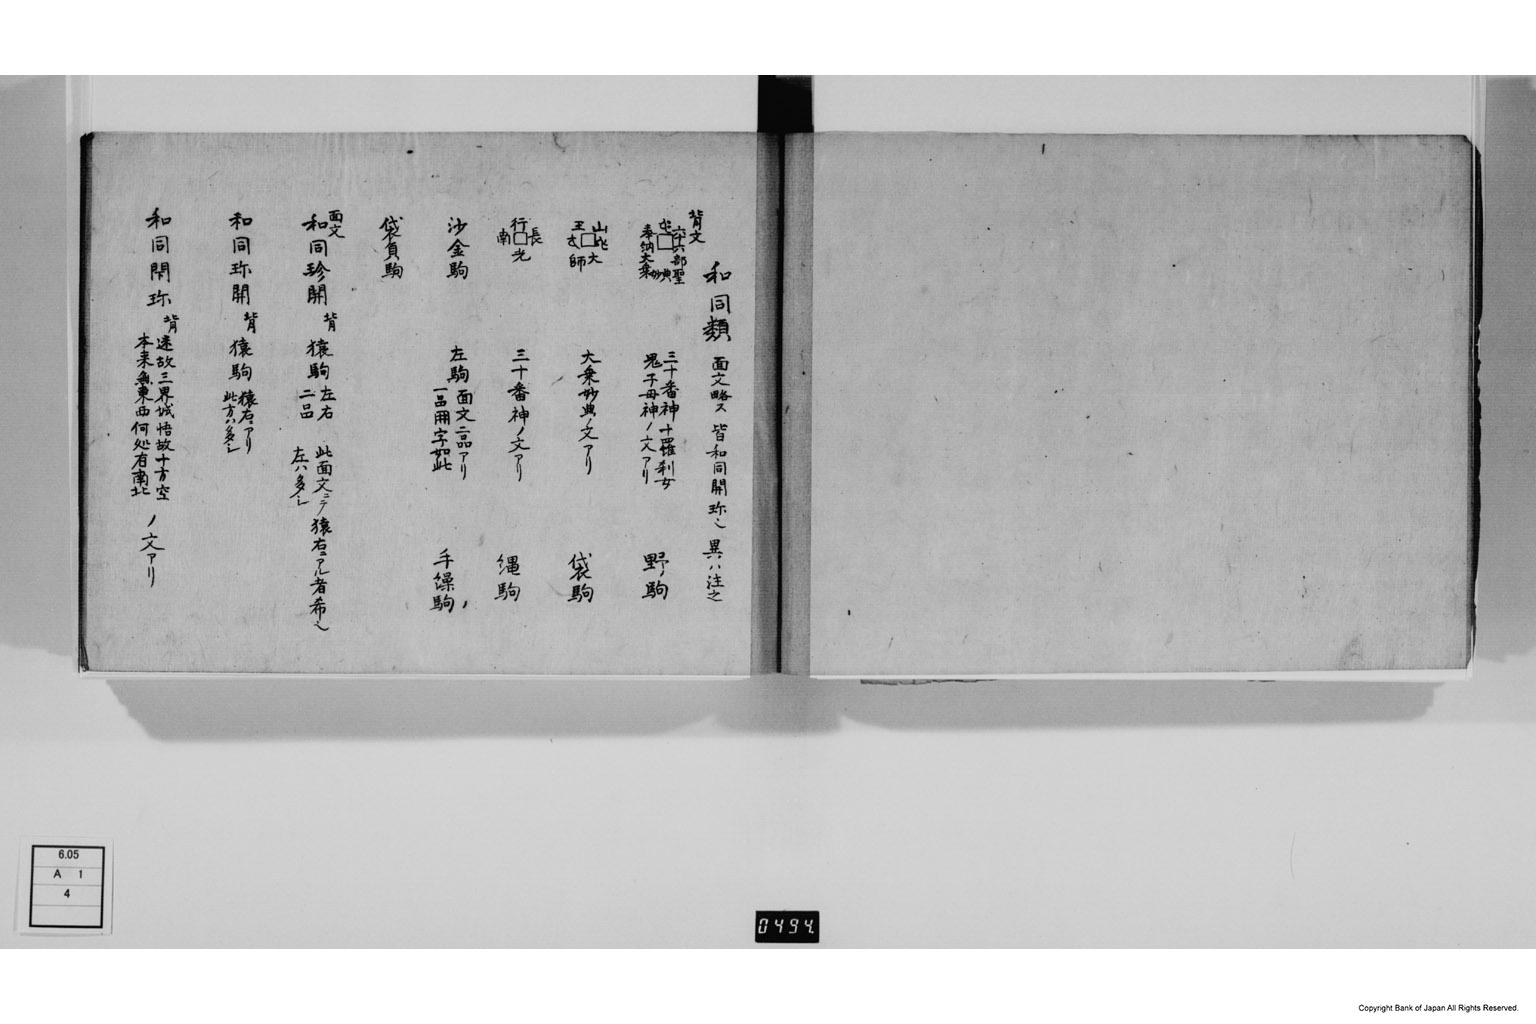 和同類 面文略ス 皆和同開珎也 異ハ注之
背文
六十六部聖
奉納大乗妙典
三十番神十羅刹女
鬼子母神ノ文アリ
野駒
山
大
王
太師
大乗妙典ノ文アリ
袋駒
長
行
南
光
三十番神ノ文アリ
縄駒
沙金駒
左駒
面文二品アリ
一品用字如此
手繰駒
袋負駒
面文
和同珍開 背 猿駒
左右
二品
此面文ニテ猿右ニアル者希也
左ハ多シ
和同珎開 背 猿駒
猿右ニアリ
此方ハ多シ
和同開珎 背
迷故三界城悟故十方空
本来無東西何処有南北
ノ文アリ
6.05
A 1
4
0494
Copyright Bank of Japan All Rights Reserved.